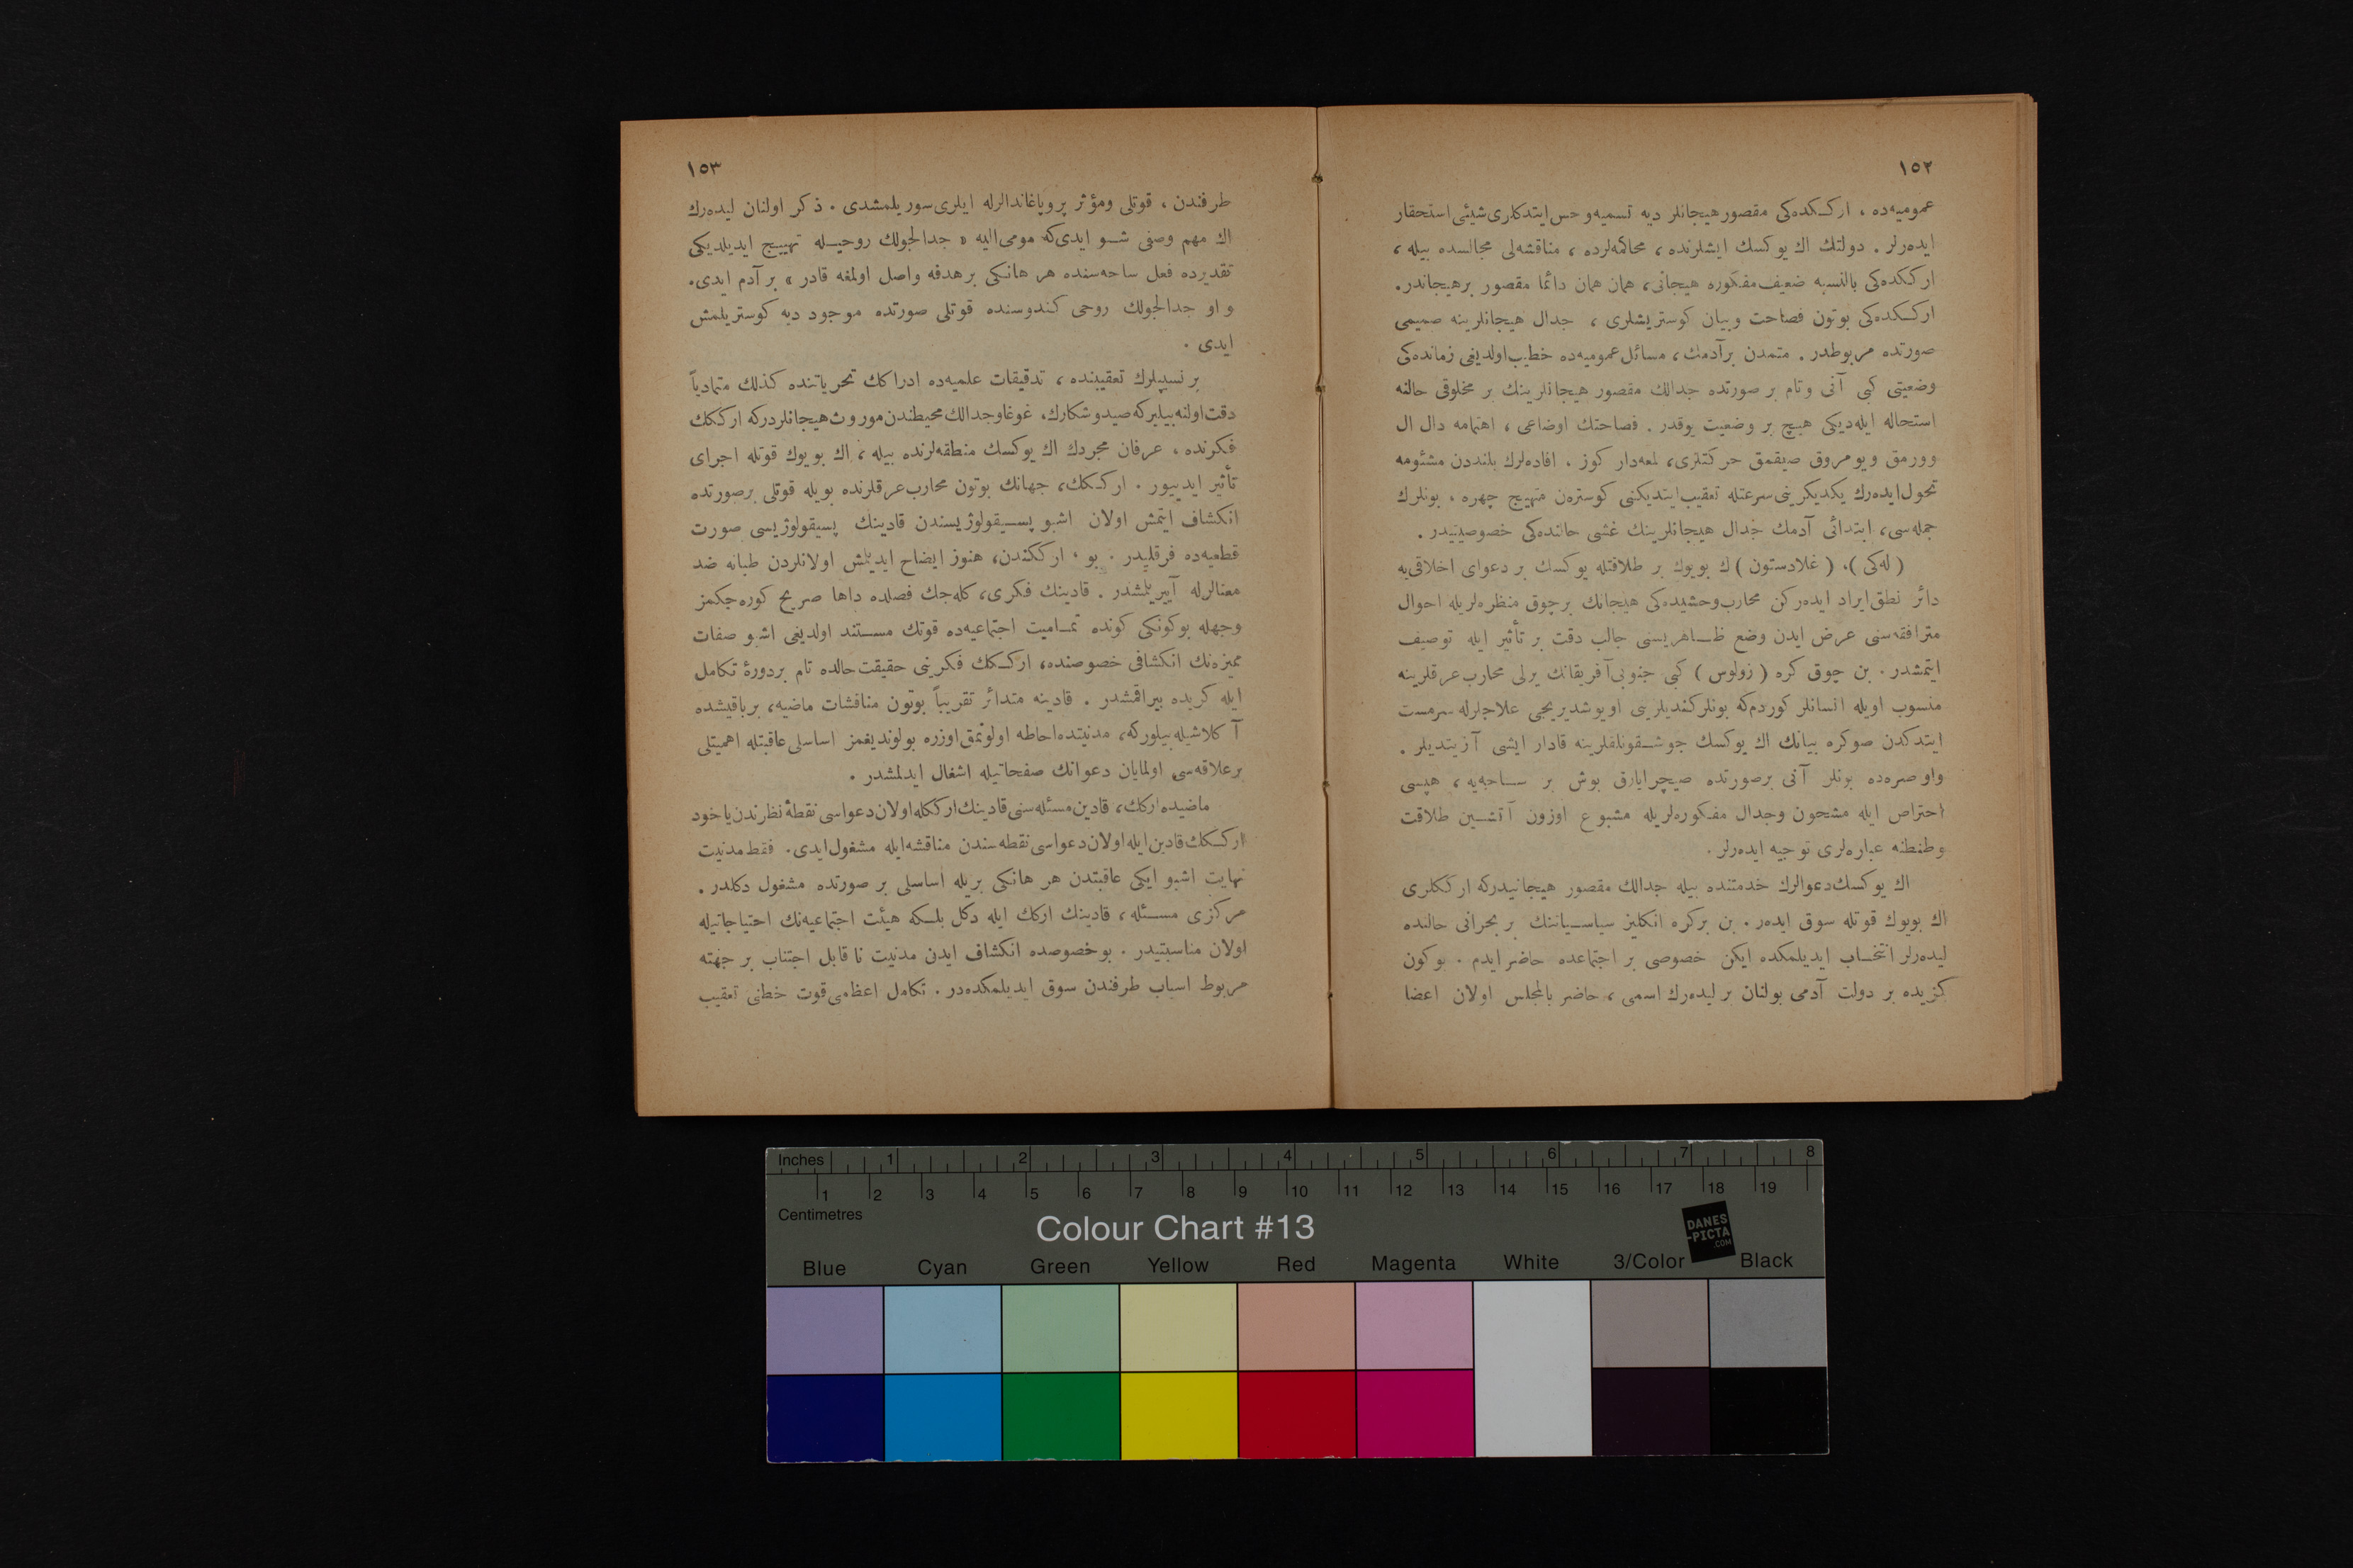 ١٥٢
عمومیه‌ده ، ارككده‌كی مقصور هیجانلر دیه تسمیه و حس ایتدكلری شیئی استحقار
ایده‌رلر . دولتك اك یوكسك ایشلرنده ، محاكمه‌لرده ، مناقشه‌لی مجالسده بیله ،
ارككده‌كی بالنسبه ضعیف مفكوره هیجانی ، همان همان دائما مقصور برهیجاندر .
ارككده‌كی بوتون فصاحت وبیان كوستریشلری ، جدال هیجانلرینه صمیمی
صورتده مربوطدر . متمدن برآدمك ، مسائل عمومیه‌ده خطیب اولدیغی زمانده‌كی
وضعیتی كبی آنی وتام بر صورتده جدالك مقصور هیجانلرینك بر مخلوقی حالنه
استحاله ایله‌دیكی هیچ بر وضعیت یوقدر . فصاحتك اوضاعی ، اهتمامه دال ال
وورمق ویومروق صیقمق حركتلری ، لمعه‌دار كوز . افاده‌لرك بلنددن مشئومه
تحول ایده‌رك یكدیكرینی سرعتله تعقیب ایتدیكنی كوسترەن متهییج چهره ، بونلرك
جمله‌سی ، ابتدائی آدمك جدال هیجانلرینك غشی حالنده‌كی خصوصیتیدر .
( له‌كی ) ، ( غلادستون ) ك بویوك بر طلاقتله یوكسك بر دعوای اخلاقی‌یه
دائر نطق ایراد ایده‌ركن محارب وحشیده‌كی هیجانك برچوق منظره‌لریله احوال
مترافقه‌سنی عرض ایدن وضع ظاهریسنی جالب دقت بر تأثیر ایله توصیف
ایتمشدر . بن چوق كره ( زولوس ) كبی جنوبی آفریقانك یرلی محارب عرقلرینه
منسوب اویله انسانلر كوردم‌كه بونلر كندیلرینی اویوشدیریجی علاجلرله سرمست
ایتدكدن صوكره بیانك اك یوكسك جوشقونلقلرینه قادار ایشی آزیتدیلر .
واو صره‌ده بونلر آنی برصورتده صیچرایارق بوش بر ساحه‌یه ، هپسی
احتراص ایله مشحون وجدال مفكوره‌لریله مشبوع اوزون آتشین طلاقت
وطنطنه عباره‌لری توجیه ایده‌رلر .
اك یوكسك دعوالرك خدمتنده بیله جدالك مقصور هیجانیدركه ارككلری
اك بویوك قوتله سوق ایده‌ر . بن بركره انكلیز سیاسیاتنك بر بحرانی حالنده
لیده‌رلر انتخاب ایدیلمكده ایكن خصوصی بر اجتماعده حاضر ایدم . بوكون
كزیده بر دولت آدمی بولنان بر لیده‌رك اسمی ، حاضر بالمجلس اولان اعضا
١٥٣
طرفندن ، قوتلی ومؤثر پروپاغاندالرله ایلری سوریلمشدی . ذكر اولنان لیده‌رك
اك مهم وصفی شو ایدی‌كه مومی‌الیه « جدالجولك روحیله تهییج ایدیلدیكی
تقدیرده فعل ساحه‌سنده هر هانكی برهدفه واصل اولمغه قادر » بر آدم ایدی .
و او جدالجولك روحی كندوسنده قوتلی صورتده موجود دیه كوستریلمش
ایدی .
برنسیپلرك تعقیبنده ، تدقیقات علمیه‌ده ادراكك تحریاتنده كذلك متمادیاً
دقت اولنه بیلیركه صیدوشكارك ، غوغا وجدالك محیطندن موروث هیجانلردركه ارككك
فكرنده ، عرفان مجردك اك یوكسك منطقه‌لرنده بیله ، اك بویوك قوتله اجرای
تأثیر ایدییور . ارككك ، جهانك بوتون محارب عرقلرنده بویله قوتلی برصورتده
انكشاف ایتمش اولان اشبو پسیقولوژیسندن قادینك پسیقولوژیسی صورت
قطعیه‌ده فرقلیدر . بو ، ارككندن ، هنوز ایضاح ایدیلمش اولانلردن طبانه ضد
معنالرله آییریلمشدر . قادینك فكری ، كله‌جك فصلده داها صریح كوره‌جكمز
وجهله بوكونكی كونده تمامیت اجتماعیه‌ده قوتك مستند اولدیغی اشبو صفات
ممیزه‌نك انكشافی خصوصنده ، ارككك فكرینی حقیقت حالده تام بردورهٔ تكامل
ایله كریده بیراقمشدر . قادینه متدائر تقریباً بوتون مناقشات ماضیه ، برباقیشده
آكلاشیله بیلوركه ، مدنیتده احاطه اولونمق اوزره بولوندیغمز اساسلی عاقبتله اهمیتلی
برعلاقه‌سی اولمایان دعوانك صفحاتیله اشغال ایدلمشدر .
ماضیده اركك ، قادین مسئله‌سنی قادینك ارككله اولان دعواسی نقطهٔ نظرندن یاخود
ارككك قادین ایله اولان دعواسی نقطه‌سندن مناقشه ایله مشغول ایدی . فقط مدنیت
نهایت اشبو ایكی عاقبتدن هر هانكی بریله اساسلی بر صورتده مشغول دكلدر .
مركزی مسئله ، قادینك اركك ایله دكل بلكه هیئت اجتماعیه‌نك احتیاجاتیله
اولان مناسبتیدر . بوخصوصده انكشاف ایدن مدنیت نا قابل اجتناب بر جهته
مربوط اسباب طرفندن سوق ایدیلمكده‌در . تكامل اعظمی قوت خطنی تعقیب
Inches 1 2 3 4 5 6 7 8
1 2 3 4 5 6 7 8 9 10 11 12 13 14 15 16 17 18 19
Centimetres
Colour Chart #13
DANES
-PICTA
.COM
Blue Cyan Green Yellow Red Magenta White 3/Color Black